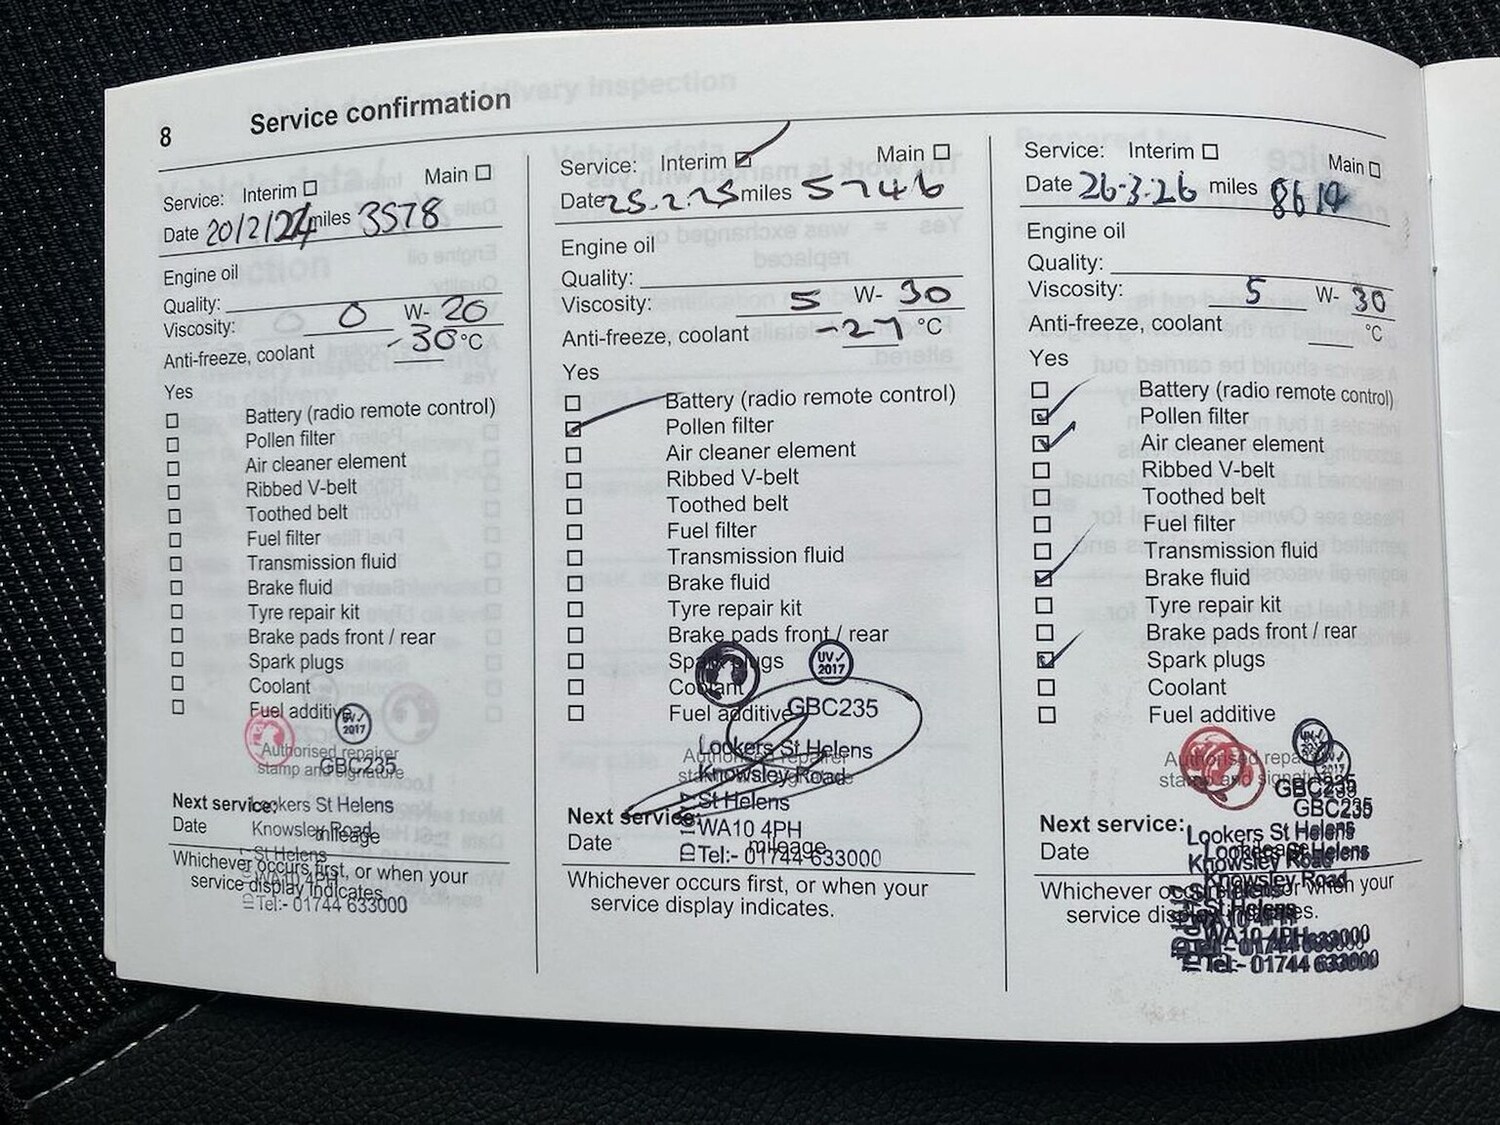 8 Service confirmation
Service: Interim Main
Date 20/2/24 miles 3578
Engine oil
Quality:
Viscosity: 0 W- 20
Anti-freeze, coolant -30 °C
Yes
Battery (radio remote control)
Pollen filter
Air cleaner element
Ribbed V-belt
Toothed belt
Fuel filter
Transmission fluid
Brake fluid
Tyre repair kit
Brake pads front / rear
Spark plugs
Coolant
Fuel additive
UV✓
2017
Authorised repairer
stamp and signature
GBC235
Next service:
Lookers St Helens
Date mileage
Knowsley Road
St Helens
WA10 4PH
Whichever occurs first, or when your
service display indicates.
Tel:- 01744 633000
Service: Interim ✓ Main
Date 25.2.25 miles 5746
Engine oil
Quality:
Viscosity: 5 W- 30
Anti-freeze, coolant -27 °C
Yes
Battery (radio remote control)
✓ Pollen filter
Air cleaner element
Ribbed V-belt
Toothed belt
Fuel filter
Transmission fluid
Brake fluid
Tyre repair kit
Brake pads front / rear
Spark plugs
Coolant
Fuel additive
UV✓
2017
GBC235
Authorised repairer
stamp and signature
Lookers St Helens
Knowsley Road
St Helens
WA10 4PH
Tel:- 01744 633000
Next service:
Date mileage
Whichever occurs first, or when your
service display indicates.
Service: Interim Main
Date 26-3.26 miles 8614
Engine oil
Quality:
Viscosity: 5 W- 30
Anti-freeze, coolant °C
Yes
Battery (radio remote control)
✓ Pollen filter
✓ Air cleaner element
Ribbed V-belt
Toothed belt
Fuel filter
Transmission fluid
✓ Brake fluid
Tyre repair kit
Brake pads front / rear
✓ Spark plugs
Coolant
Fuel additive
Authorised repairer
stamp and signature
GBC235
GBC235
Next service:
Date
Lookers St Helens
Lookers St Helens
Knowsley Road
Knowsley Road
St Helens
St Helens
WA10 4PH
WA10 4PH
Tel:- 01744 633000
Tel:- 01744 633000
Whichever occurs first, or when your
service display indicates.